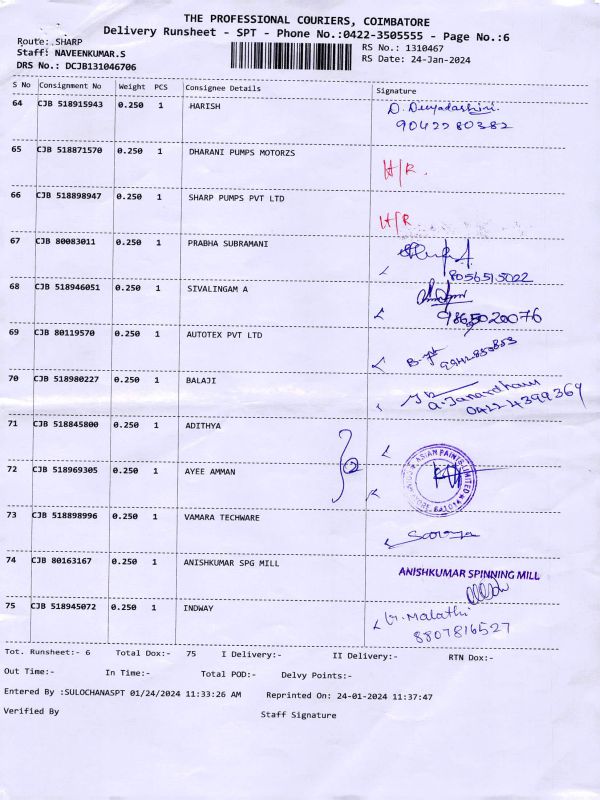 THE PROFESSIONAL COURIERS, COIMBATORE
Delivery Runsheet - SPT - Phone No.:0422-3505555 - Page No.:6
Route: SHARP
RS No.: 1310467
Staff: NAVEENKUMAR.S
RS Date: 24-Jan-2024
DRS No.: DCJB131046706
S No Consignment No Weight PCS Consignee Details Signature
64 CJB 518915943 0.250 1 HARISH D. Deepadarshini
9042280382
65 CJB 518871570 0.250 1 DHARANI PUMPS MOTORZS H/R.
66 CJB 518898947 0.250 1 SHARP PUMPS PVT LTD H/R
67 CJB 80083011 0.250 1 PRABHA SUBRAMANI
8056515022
68 CJB 518946051 0.250 1 SIVALINGAM A
9865020076
69 CJB 80119570 0.250 1 AUTOTEX PVT LTD
70 CJB 518980227 0.250 1 BALAJI
a. Janardhanu
0422 4399369
71 CJB 518845800 0.250 1 ADITHYA
72 CJB 518969305 0.250 1 AYEE AMMAN 2 ASIAN PAINTS LIMITED
73 CJB 518898996 0.250 1 VAMARA TECHWARE
74 CJB 80163167 0.250 1 ANISHKUMAR SPG MILL ANISHKUMAR SPINNING MILL
75 CJB 518945072 0.250 1 INDWAY Malathi
8807816527
Tot. Runsheet:- 6 Total Dox:- 75 I Delivery:- II Delivery:- RTN Dox:-
Out Time:- In Time:- Total POD:- Delvy Points:-
Entered By :SULOCHANASPT 01/24/2024 11:33:26 AM Reprinted On: 24-01-2024 11:37:47
Verified By Staff Signature